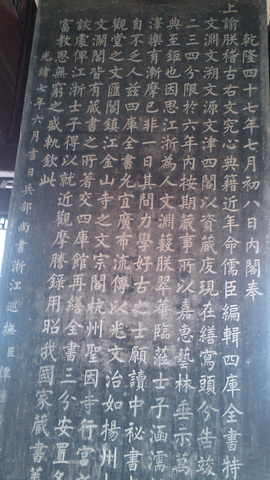 乾隆四十七年七月初八日內閣奉
上諭朕稽古右文究心典籍近年命儒臣編輯四庫全書特
文淵文溯文源文津四閣以資藏庋現在繕寫頭分告竣
二三四分限於六年內按期蕆事所以嘉惠藝林垂示萬
典至鉅也因思江浙為人文淵藪朕翠華臨莅士子涵濡
澤樂育漸摩已非一日其間力學好古之士願讀中秘書
自不乏人茲四庫全書允宜廣布流傳以光文治如揚州
觀堂之文匯閣鎮江金山寺之文宗閣杭州聖因寺行宮
文瀾閣皆有藏書之所著交四庫館再繕全書三分安置
該處俾江浙士子得以就近觀摩謄錄用昭我國家藏書
富教思無窮之盛軌欽此
光緒七年六月吉日兵部尚書浙江巡撫臣譚